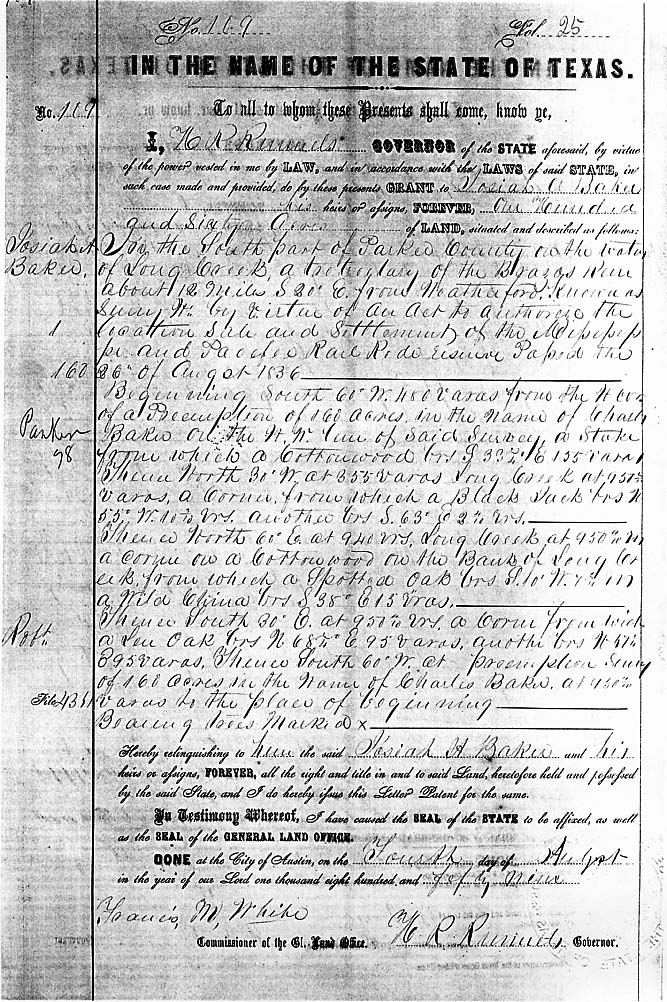 No. 169 Vol. 25
IN THE NAME OF THE STATE OF TEXAS.
No. 169 To all to whom these Presents shall come, know ye,
I, H R Runnels GOVERNOR of the STATE aforesaid, by virtue
of the power vested in me by LAW, and in accordance with the LAWS of said STATE, in
such case made and provided, do by these presents GRANT to Josiah A Baker
his heirs or assigns, FOREVER, One Hundred
and Sixty Acres of LAND, situated and described as follows:
Josiah A Baker,
1
160
Parker
98
Robt
File 4351
In the South part of Parker County on the waters
of Long Creek, a tributary of the Brazos River
about 12 miles S 20° E. from Weatherford. Known as
Survey No. by virtue of an Act to authorize the
location Sale and Settlement of the Mississsip
pi and Pacific Rail Rode reserve Passed the
26th of August 1856
Beginning South 60° W. 480 varas from the N
of a Preemption of 160 Acres, in the Name of Charles
Baker on the N. W. line of Said Survey, a Stake
from which a Cottonwood brs S 33½° E 155 varas
Thence North 30° W. at 355 varas Long Creek at 950
varas, a Corner, from which a Black Jack brs N
55° W. 10 vrs. another brs S. 63° E 2 vrs.
Thence North 60° E. at 940 vrs. Long Creek at 950
a corner on a Cottonwood on the Bank of Long Cr
eek, from which a Spotted Oak brs S. 10° W. 7
a Wild China brs S 38° E 15 varas.
Thence South 30° E. at 950 vrs. a Corner from wich
a Oak brs N 68½° E 95 varas, another brs N 57
E 95 varas, Thence South 60° W. at Preemption Survey
of 160 acres in the Name of Charles Baker, at 950
varas to the place of beginning
Bearing trees Marked x
Hereby relinquishing to him the said Josiah A Baker and his
heirs or assigns, FOREVER, all the right and title in and to said Land, heretofore held and possessed
by the said State, and I do hereby issue this Letter Patent for the same.
In Testimony Whereof, I have caused the SEAL of the STATE to be affixed, as well
as the SEAL of the GENERAL LAND OFFICE.
DONE at the City of Austin, on the Fourth day of August
in the year of our Lord one thousand eight hundred and fifty nine
Francis M. White
Commissioner of the Gl. Land Office. H R Runnels Governor.